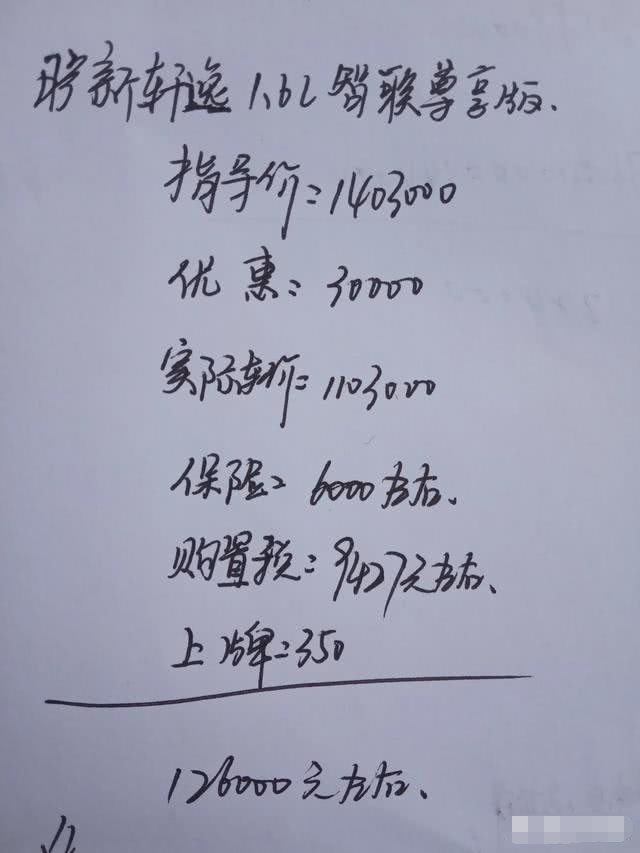 新轩逸1.6L智联尊享版.
指导价=1403000
优惠: 30000
实际车价=1103000
保险= 6000左右.
购置税=9427元左右.
上牌=350
126000元左右.